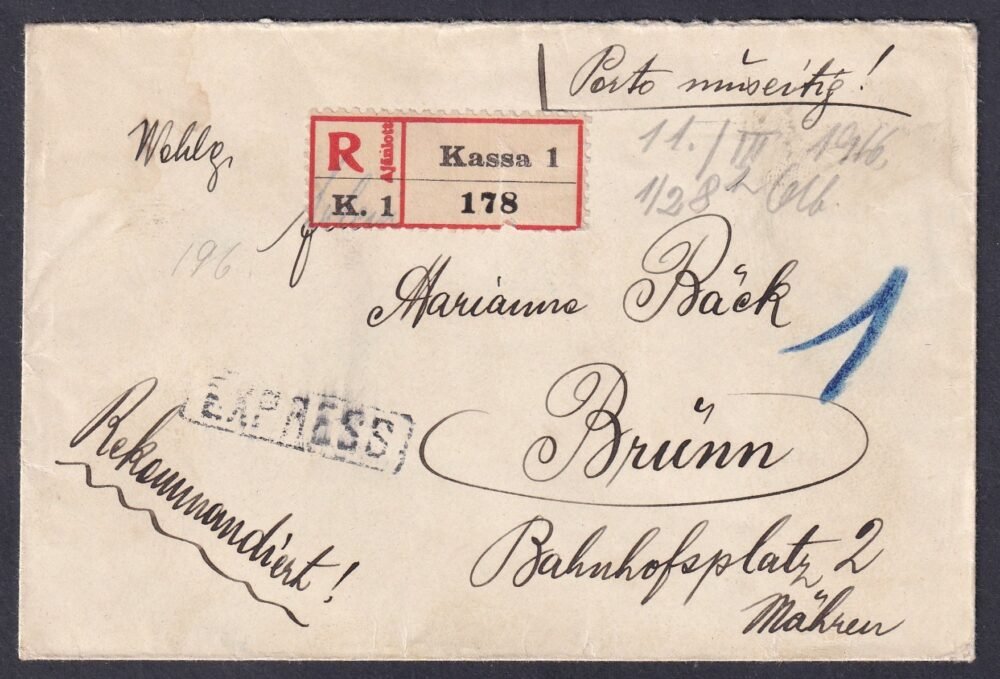 Porto
Wohlg.
R Ajánlott Kassa 1
K. 1 178
11./III. 1916.
1/28
196.
Marianne Bäck
1
EXPRESS
Brünn
Rekommandiert!
Bahnhofsplatz 2
Mähren